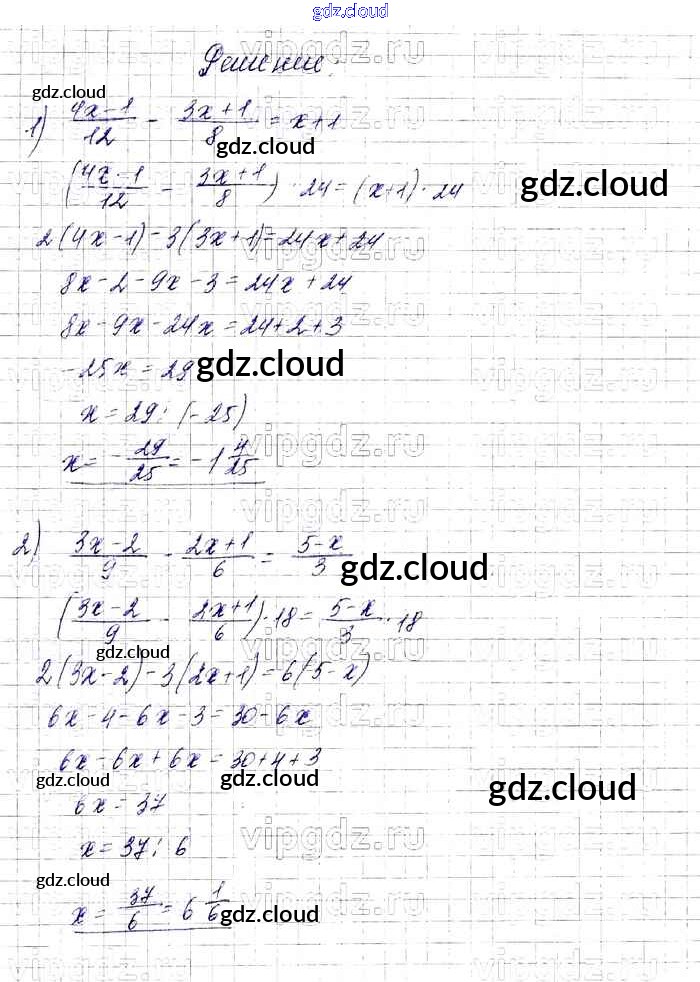 gdz.cloud
Решение.
gdz.cloud
1) (4x-1)/12 - (3x+1)/8 = x+1
gdz.cloud
((4x-1)/12 - (3x+1)/8) · 24 = (x+1) · 24
gdz.cloud
2(4x-1)-3(3x+1)=24x+24
8x-2-9x-3=24x+24
8x-9x-24x=24+2+3
-25x = 29
gdz.cloud
x = 29 : (-25)
x = - 29/25 = -1 4/25
2) (3x-2)/9 - (2x+1)/6 = (5-x)/3
gdz.cloud
((3x-2)/9 - (2x+1)/6) · 18 = (5-x)/3 · 18
gdz.cloud
2(3x-2)-3(2x+1)=6(5-x)
6x-4-6x-3=30-6x
6x-6x+6x=30+4+3
gdz.cloud gdz.cloud gdz.cloud
6x = 37
x = 37 : 6
gdz.cloud
x = 37/6 = 6 1/6
gdz.cloud
vipgdz.ru